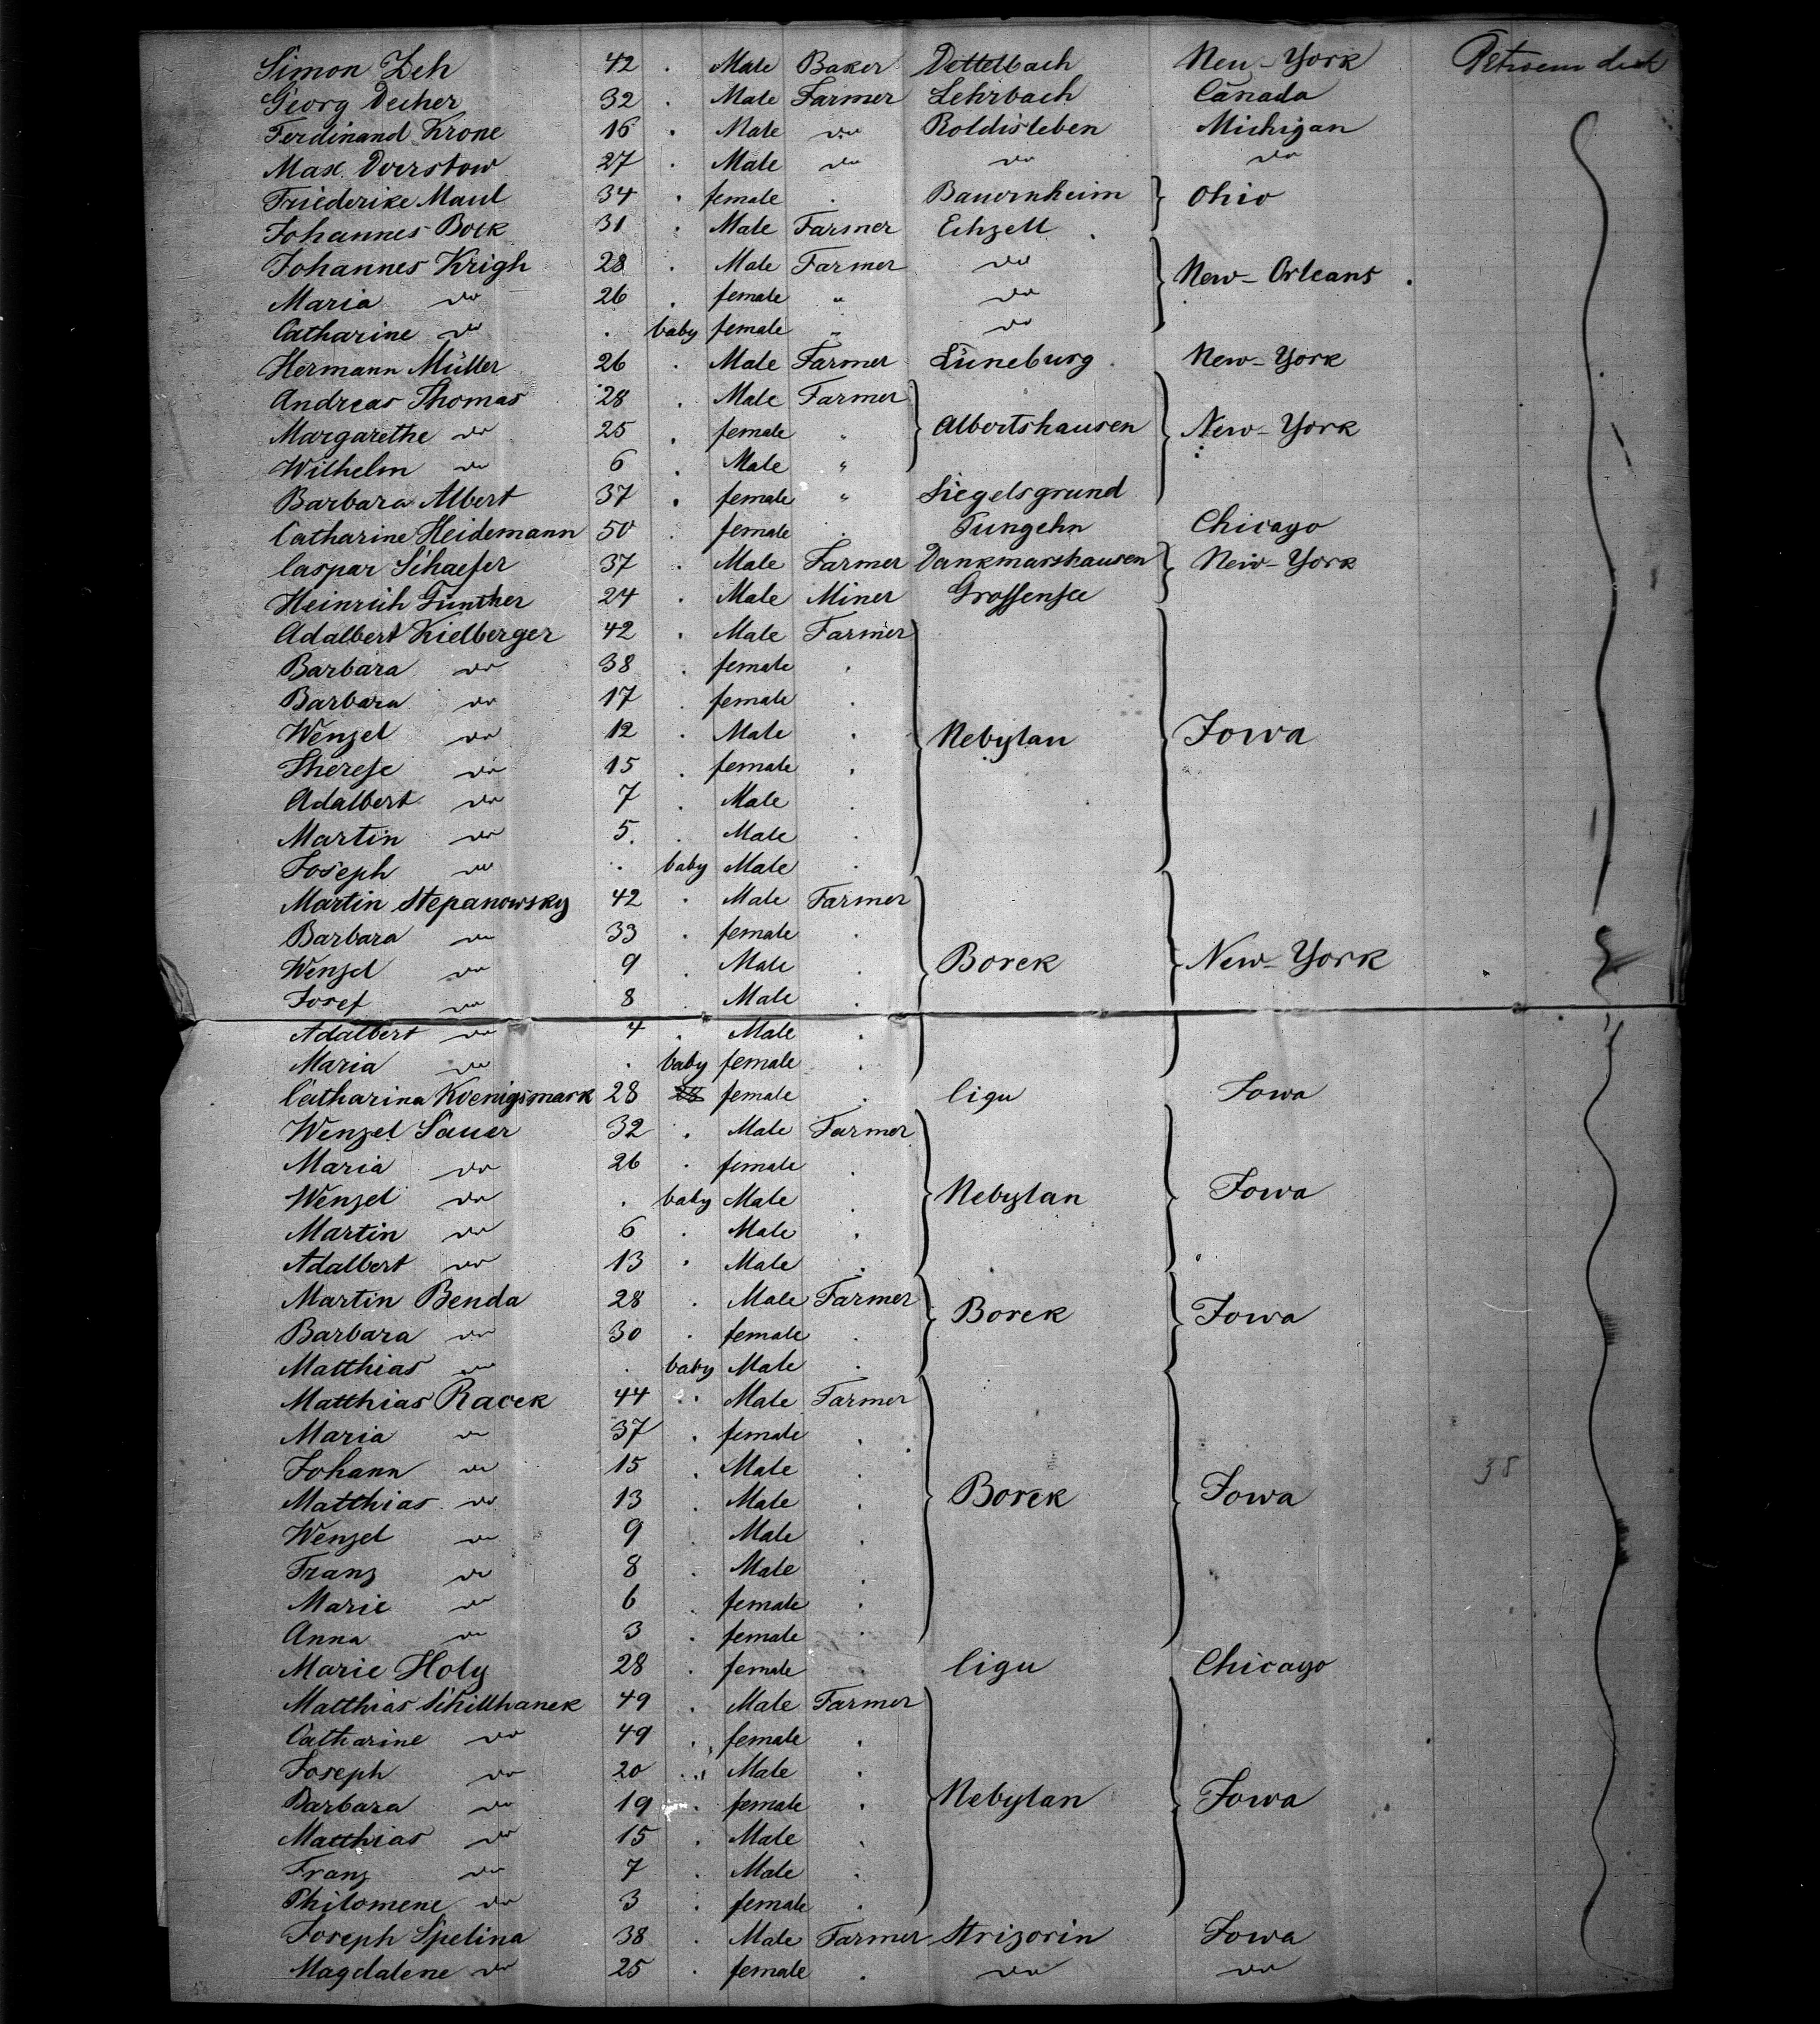 Simon Zeh 42 . Male Baker Dettelbach New-York Between deck
Georg Decher 32 . Male Farmer Lehrbach Canada
Ferdinand Krone 16 . Male do Roldisleben Michigan
Max Doerstow 27 . Male do do do
Friederike Maul 34 . female . Bauernheim } Ohio
Johannes Bock 31 . Male Farmer Echzell
Johannes Krigh 28 . Male Farmer do } New-Orleans
Maria do 26 . female " do
Catharine do . baby female " do
Hermann Müller 26 . Male Farmer Lüneburg New-York
Andreas Thomas 28 . Male Farmer
Margarethe do 25 . female " } Albertshausen } New-York
Wilhelm do 6 . Male "
Barbara Albert 37 . female " Siegelsgrund
Catharine Heidemann 50 . female . Tungehn Chicago
Caspar Schaefer 37 . Male Farmer Dankmarshausen } New-York
Heinrich Günther 24 . Male Miner Grossensee
Adalbert Kielberger 42 . Male Farmer
Barbara do 38 . female .
Barbara do 17 . female .
Wenzel do 12 . Male . } Nebylan } Iowa
Therese do 15 . female .
Adalbert do 7 . Male .
Martin do 5 . Male .
Joseph do . baby Male .
Martin Stepanowsky 42 . Male Farmer
Barbara do 33 . female .
Wenzel do 9 . Male . } Borek } New-York
Josef do 8 . Male .
Adalbert do 4 . Male .
Maria do . baby female .
Catharina Koenigsmark 28 28 female . Cigu Iowa
Wenzel Sauer 32 . Male Farmer
Maria do 26 . female .
Wenzel do . baby Male . } Nebylan } Iowa
Martin do 6 . Male .
Adalbert do 13 . Male .
Martin Benda 28 . Male Farmer } Borek } Iowa
Barbara do 30 . female .
Matthias do . baby Male .
Matthias Racek 44 . Male Farmer
Maria do 37 . female .
Johann do 15 . Male . 38
Matthias do 13 . Male . } Borek } Iowa
Wenzel do 9 . Male .
Franz do 8 . Male .
Marie do 6 . female .
Anna do 3 . female .
Marie Holy 28 . female . Cigu Chicago
Matthias Schillhanek 49 . Male Farmer
Catharine do 49 . female .
Joseph do 20 . Male .
Barbara do 19 . female . } Nebylan } Iowa
Matthias do 15 . Male .
Franz do 7 . Male .
Philomene do 3 . female .
Joseph Spelina 38 . Male Farmer Strizorin Iowa
Magdalene do 25 . female . do do